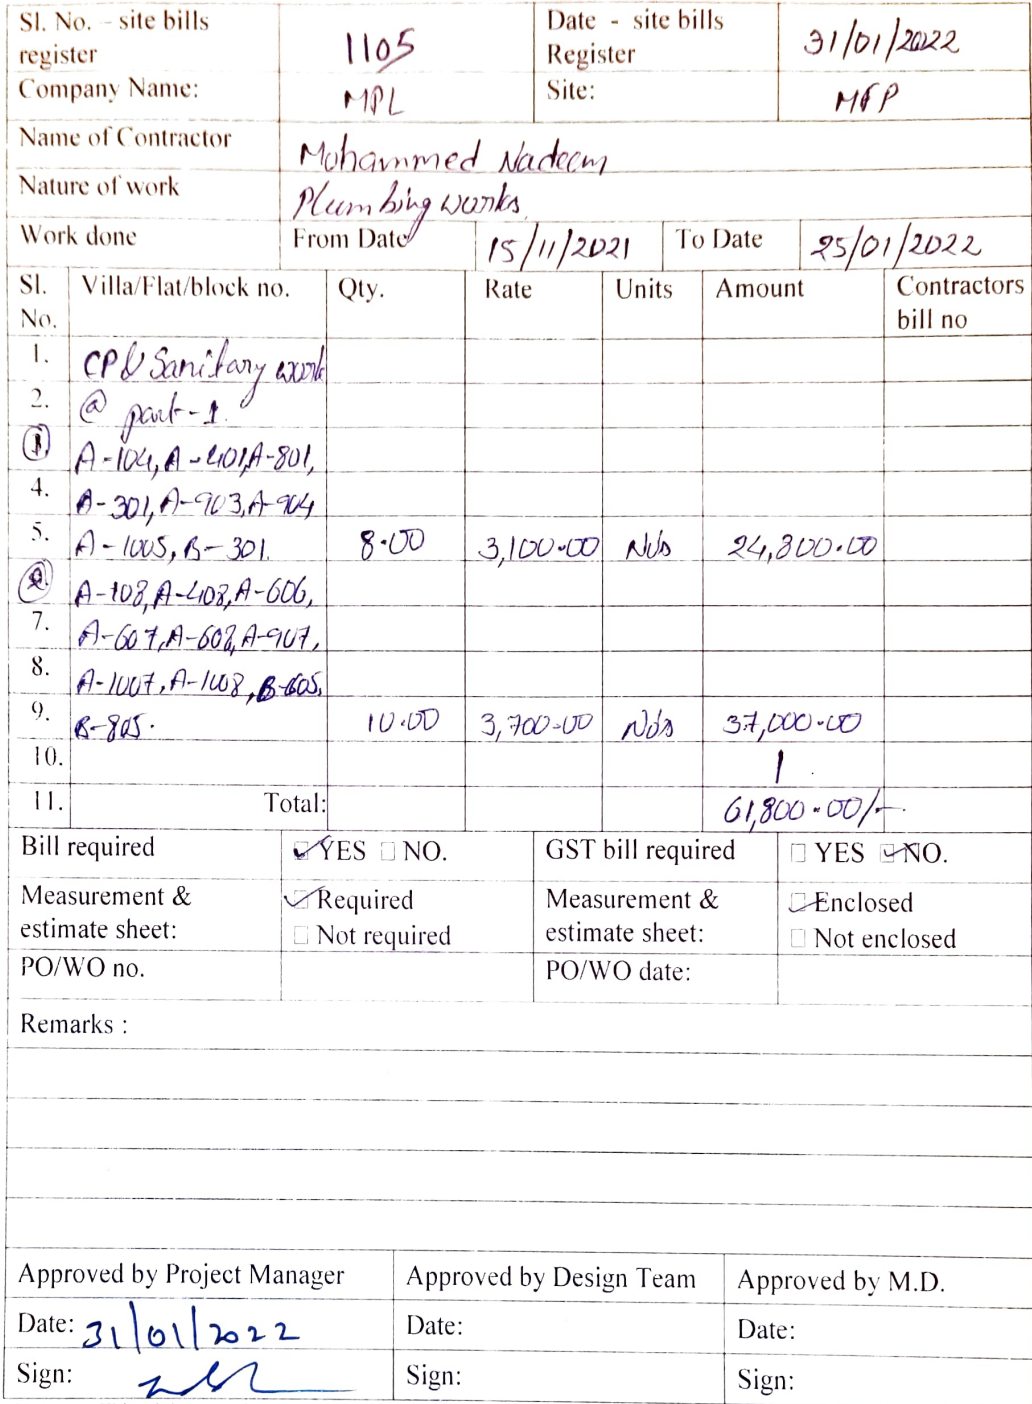 Sl. No. - site bills register 1105 Date - site bills Register 31/01/2022
Company Name: MPL Site: MFP
Name of Contractor Mohammed Nadeem
Nature of work Plumbing works
Work done From Date 15/11/2021 To Date 25/01/2022
Sl. No. Villa/Flat/block no. Qty. Rate Units Amount Contractors bill no
1. CP & Sanitary work
2. @ part-1.
1 A-104, A-401, A-801,
4. A-301, A-903, A-904
5. A-1005, B-301. 8.00 3,100.00 Nos 24,800.00
2 A-108, A-408, A-606,
7. A-607, A-608, A-907,
8. A-1007, A-1008, B-605,
9. B-805. 10.00 3,700.00 Nos 37,000.00
10.
11. Total: 61,800.00/-
Bill required YES NO. GST bill required YES NO.
Measurement & estimate sheet: Required Not required Measurement & estimate sheet: Enclosed Not enclosed
PO/WO no. PO/WO date:
Remarks :
Approved by Project Manager Approved by Design Team Approved by M.D.
Date: 31/01/2022 Date: Date:
Sign: Sign: Sign: